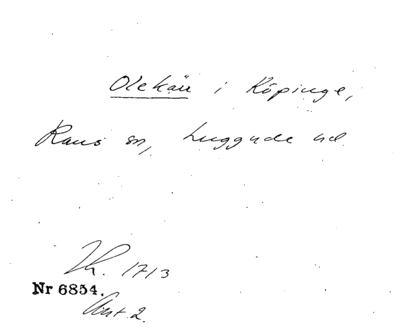 Olekärr i Köpinge,
Raus sn, Luggude hd
Lh. 1713
Nr 6854.
Avst. 2.